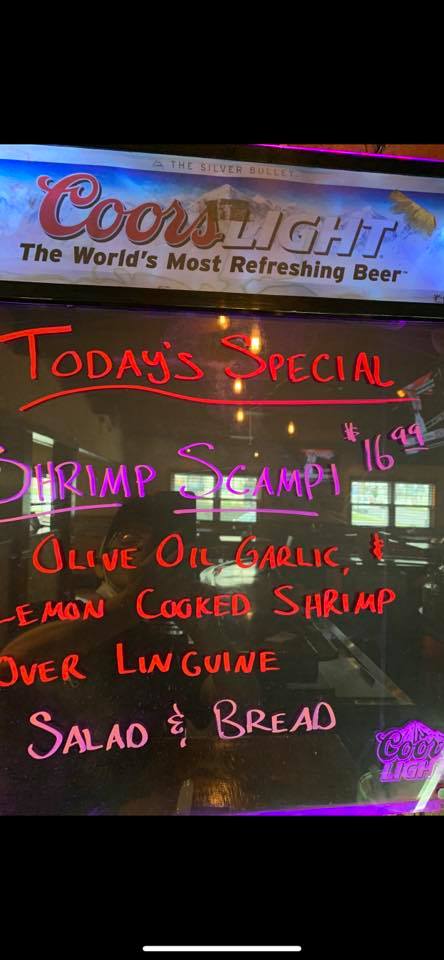 THE SILVER BULLET
Coors LIGHT
The World's Most Refreshing Beer™
TODAY'S SPECIAL
SHRIMP SCAMPI $16.99
OLIVE OIL GARLIC, &
LEMON COOKED SHRIMP
OVER LINGUINE
SALAD & BREAD
Coors
LIGHT